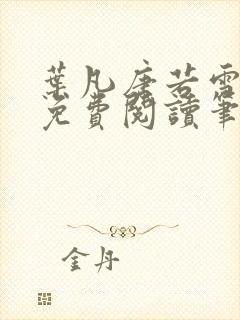 葉凡唐若雪
免費閱讀筆
金丹